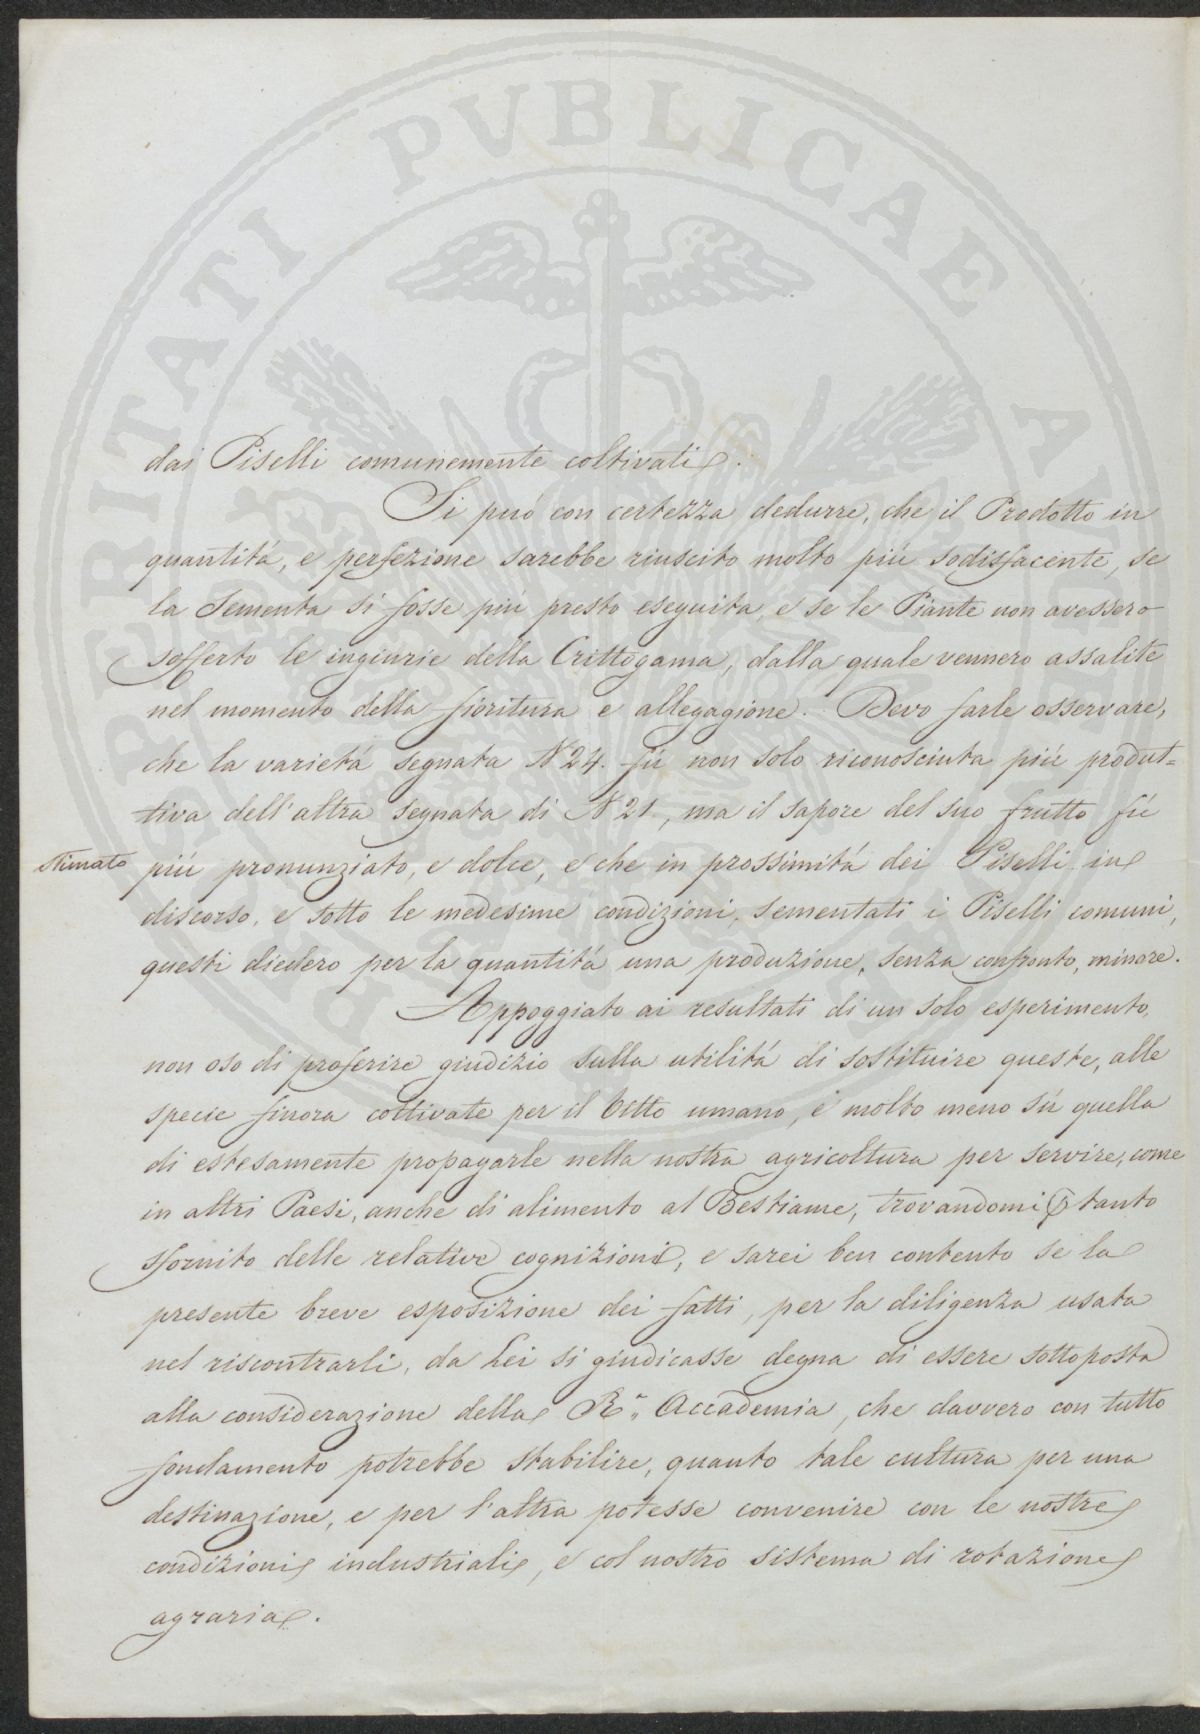 PROSPERITATI PUBLICAE AUGENDAE
dai Piselli comunemente coltivati.
Si puó con certezza dedurre, che il Prodotto in
quantitá, e perfezione sarebbe riuscito molto piú sodisfacente, se
la Sementa si fosse piú presto eseguita, e se le Piante non avessero
sofferto le ingiurie della Crittogama, dalla quale vennero assalite
nel momento della fioritura e allegagione. Devo farle osservare,
che la varietá segnata N 24. fú non solo riconosciuta piú produt=
tiva dell'altra segnata di N 21, ma il sapore del suo frutto fú
stimato piú pronunziato, e dolce, e che in prossimitá dei Piselli in
discorso, e sotto le medesime condizioni, sementati i Piselli comuni,
questi diedero per la quantitá una produzione, senza confronto, minore.
Appoggiato ai resultati di un solo esperimento,
non oso di proferire giudizio sulla utilitá di sostituire queste, alle
specie finora coltivate per il Vitto umano, e molto meno sú quella
di estesamente propagarle nella nostra agricoltura per servire, come
in altri Paesi, anche di alimento al Bestiame, trovandomi tanto
sfornito delle relative cognizioni, e sarei ben contento se la
presente breve esposizione dei fatti, per la diligenza usata
nel riscontrarli, da Lei si giudicasse degna di essere sottoposta
alla considerazione della R. Accademia, che davvero con tutto
fondamento potrebbe stabilire, quanto tale cultura per una
destinazione, e per l'altra potesse convenire con le nostre
condizioni industriali, e col nostro sistema di rotazione
agraria.